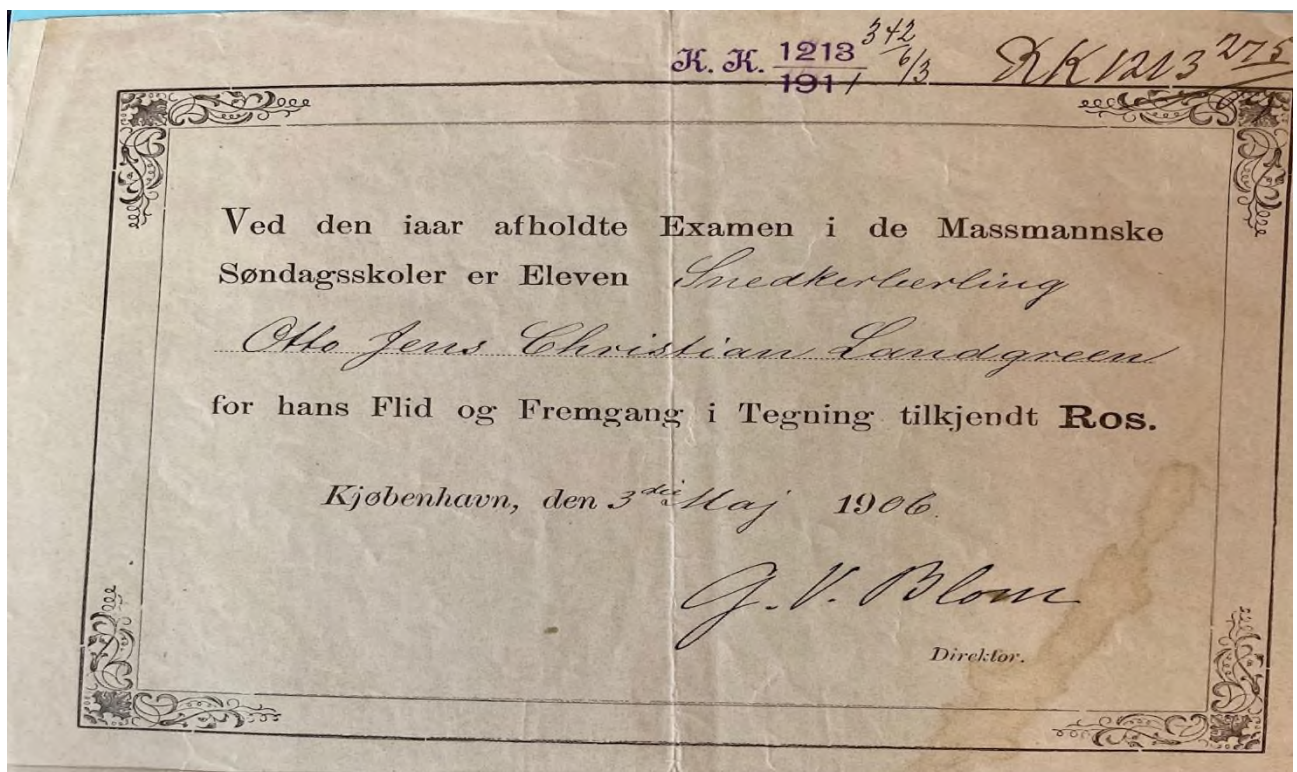 K. K. 1213 342 RK 1213 275
1911 6/3
Ved den iaar afholdte Examen i de Massmannske
Søndagsskoler er Eleven Snedkerlærling
Otto Jens Christian Landgreen
for hans Flid og Fremgang i Tegning tilkjendt Ros.
Kjøbenhavn, den 3die Maj 1906.
G. V. Blom
Direktor.